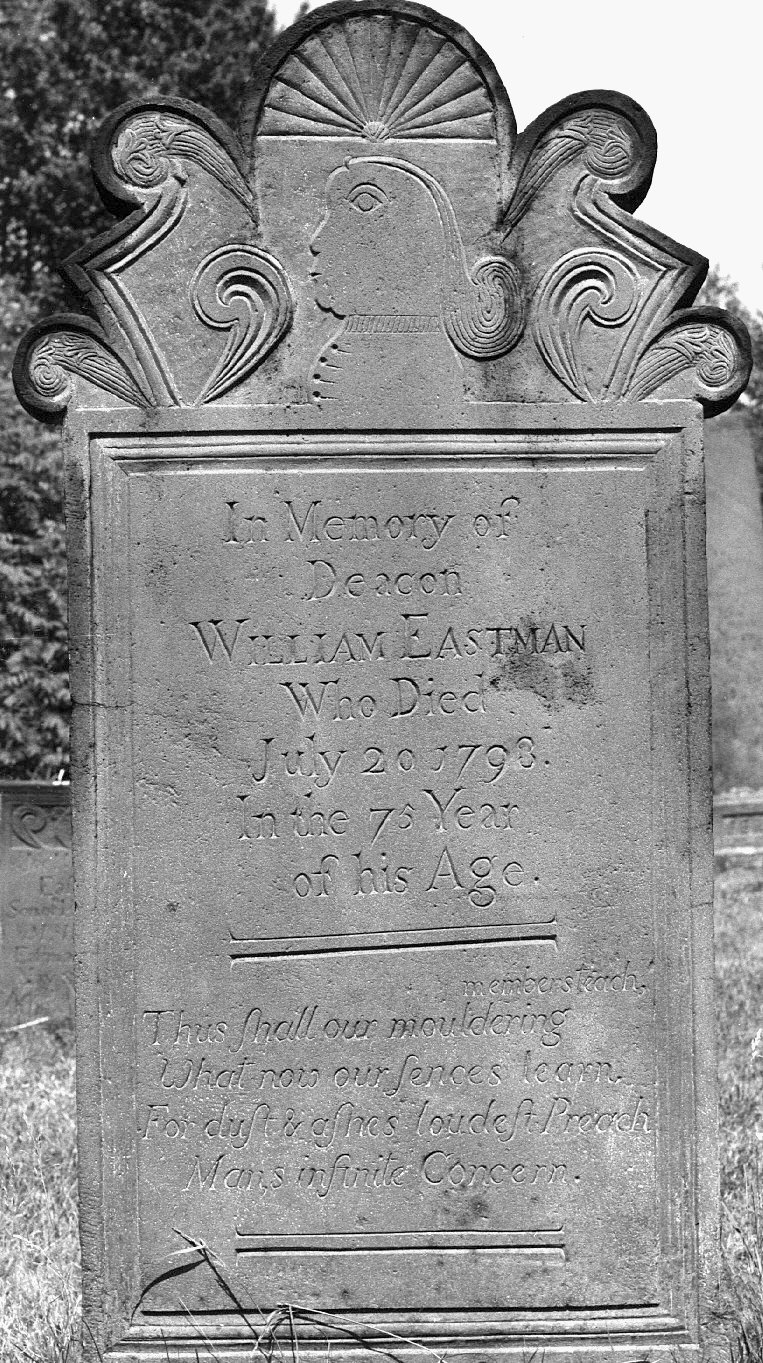 In Memory of
Deacon
WILLIAM EASTMAN
Who Died
July 20 1798.
In the 75 Year
of his Age.
members teach,
Thus ſhall our mouldering
What now our ſences learn.
For duſt & aſhes loudeſt Preach
Man,s infinite Concern.